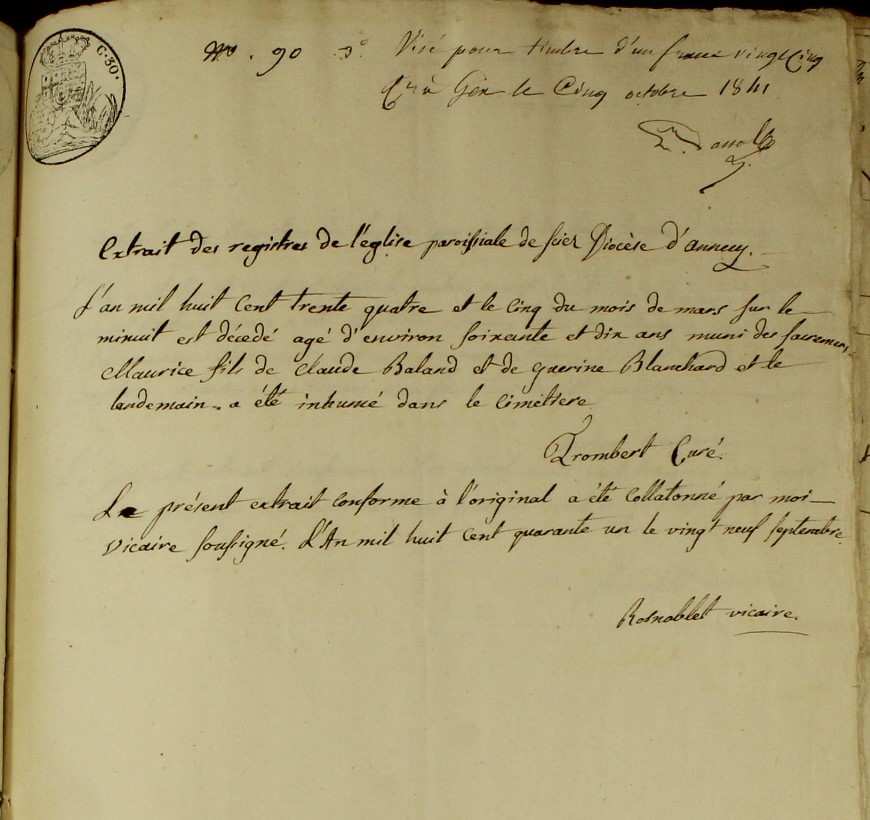 C. 30.
No. 90 Visé pour timbre d'un franc vingt Cinq
à Gex le Cinq octobre 1841
Extrait des registres de l'église paroissiale de Scier Diocèse d'annecy.
L'an mil huit Cent trente quatre et le Cinq du mois de mars sur le
minuit est décedé agé d'environ soixante et dix ans muni des sacremens
Maurice fils de Claude Baland et de Guerine Blanchard et le
landemain a été inhumé dans le Cimetiere
Trombert Curé.
Le présent extrait conforme à l'original a été Collatonné par moi
vicaire soussigné. L'An mil huit Cent quarante un le vingt neuf septembre.
Rosnoblet vicaire.